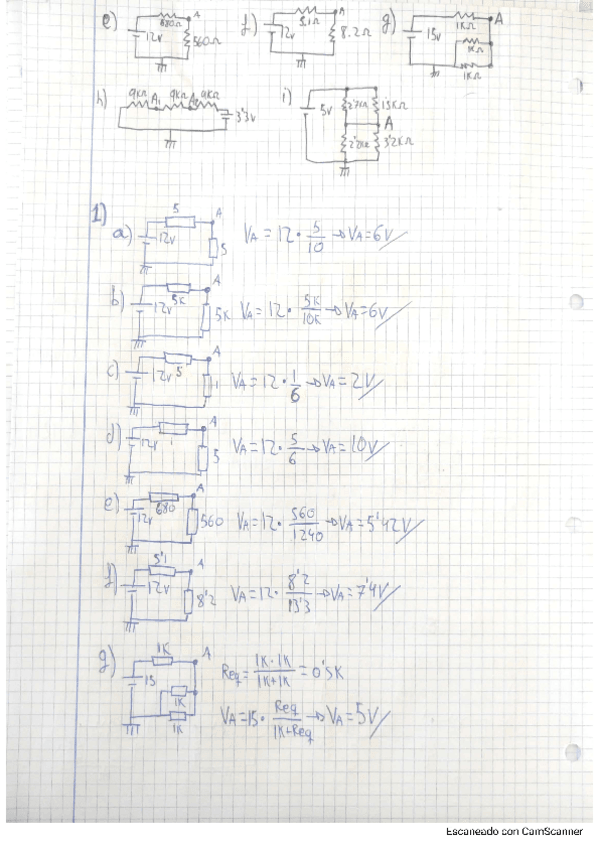 e) 680Ω A 12V 560Ω
f) 5.1Ω A 12v 8.2Ω
g) 15V 1KΩ A 1KΩ 1KΩ
h) 9KΩ A₁ 9KΩ A₂ 9KΩ 3'3V
i) 5V 1'5KΩ A 3'2KΩ
1)
a) 5 A 12V 5 VA = 12 · 5/10 → VA = 6V
b) 5K A 12V 5K VA = 12 · 5K/10K → VA = 6V
c) 5 A 12V 1 VA = 12 · 1/6 → VA = 2V
d) A 12V 5 VA = 12 · 5/6 → VA = 10V
e) 680 A 12V 560 VA = 12 · 560/1240 → VA = 5'42V
f) 5'1 A 12V 8'2 VA = 12 · 8'2/13'3 → VA = 7'4V
g) 1K A 15 1K 1K Req = 1K · 1K/1K+1K = 0'5K
VA = 15 · Req/1K+Req → VA = 5V
Escaneado con CamScanner